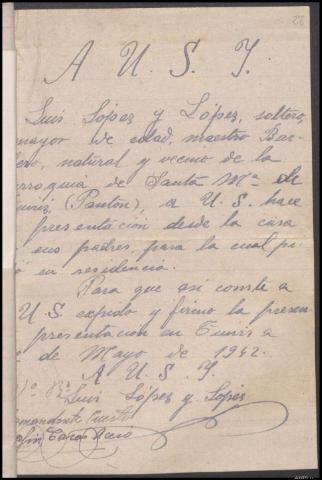 A U. S. Y.
Luis López y López, soltero,
mayor de edad, maestro Bar-
ero, natural y vecino de la
rroquia de Santa Mª de
(Pantón), a U.S. hace
presentación desde la casa
sus padres, para la cual pi
ó su residencia.
Para que así conste a
U S expido y firmo la presen-
presentacion en Tuiris a
de Mayo de 1942.
A U. S. Y.
Luis López y López
Vº Bº
omandante Puesto